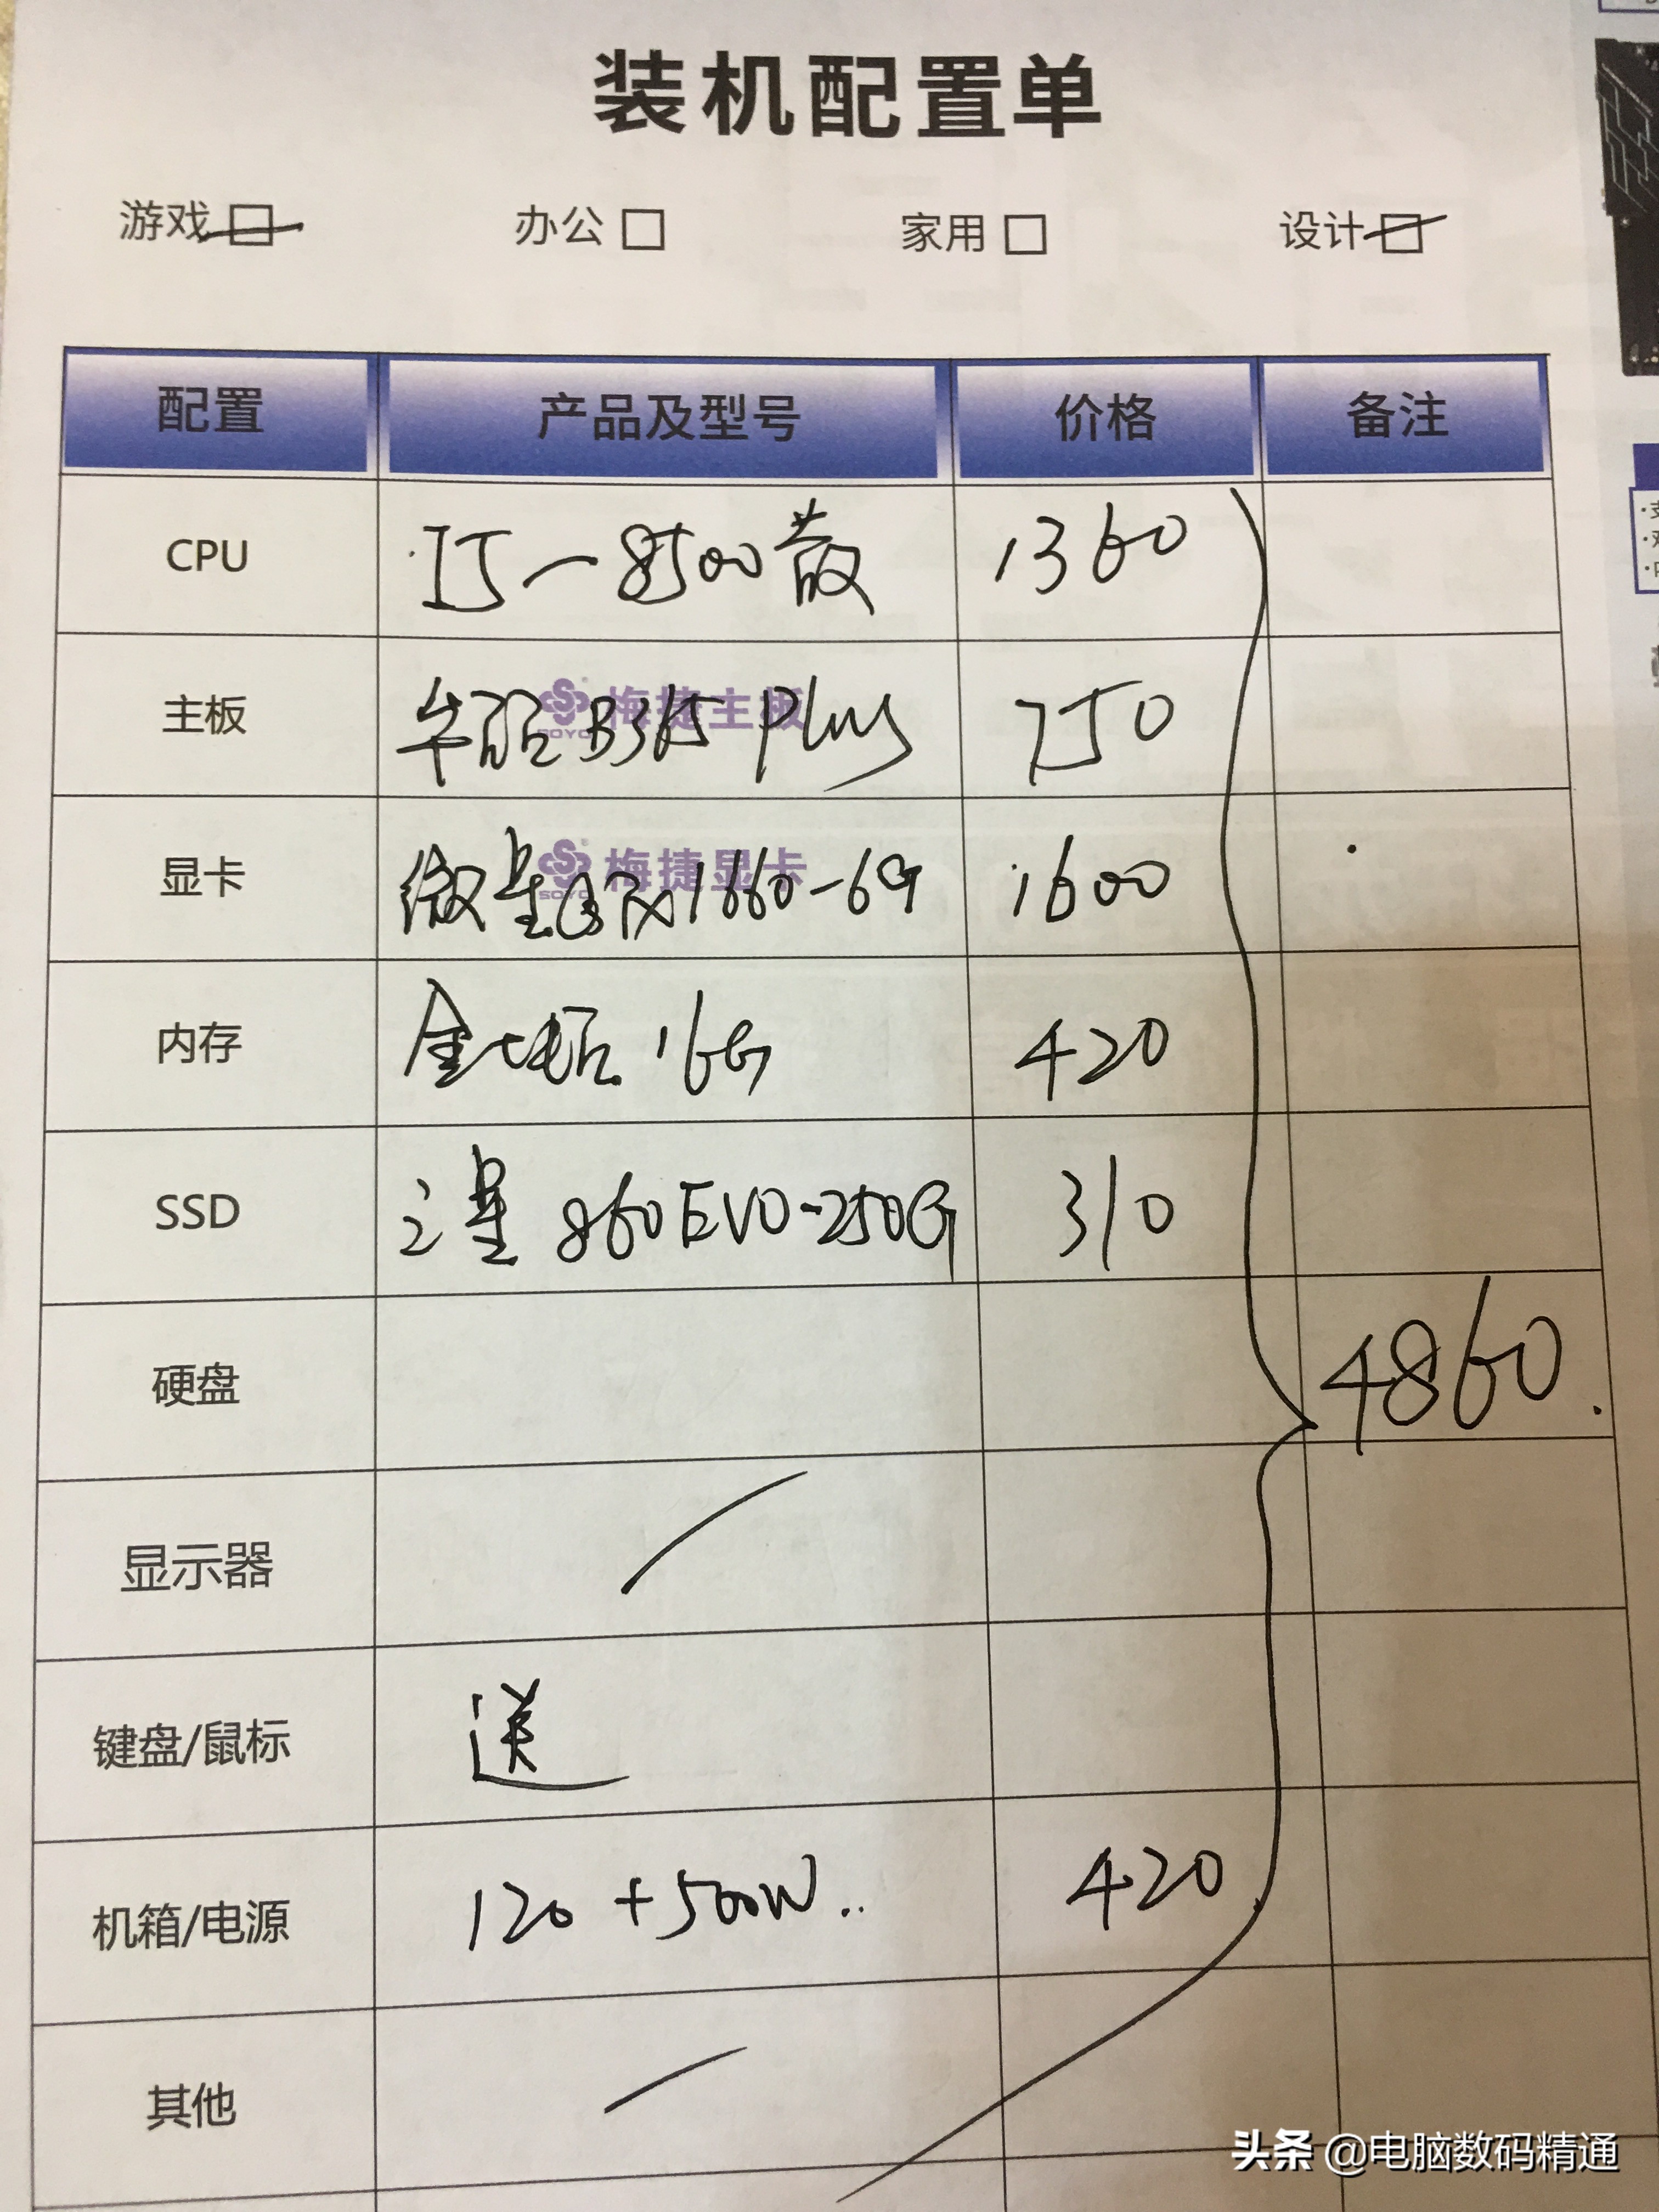 装机配置单
游戏 办公 家用 设计
配置 产品及型号 价格 备注
CPU I5-8500散 1360
主板 华硕B365 Plus 750
梅捷主板
SOYO
显卡 微星GTX1660-6G 1600
梅捷显卡
SOYO
内存 金士顿 16G 420
SSD 三星 860EVO-250G 310
硬盘 4860.
显示器
键盘/鼠标 送
机箱/电源 120+500W.. 420
其他
头条 @电脑数码精通